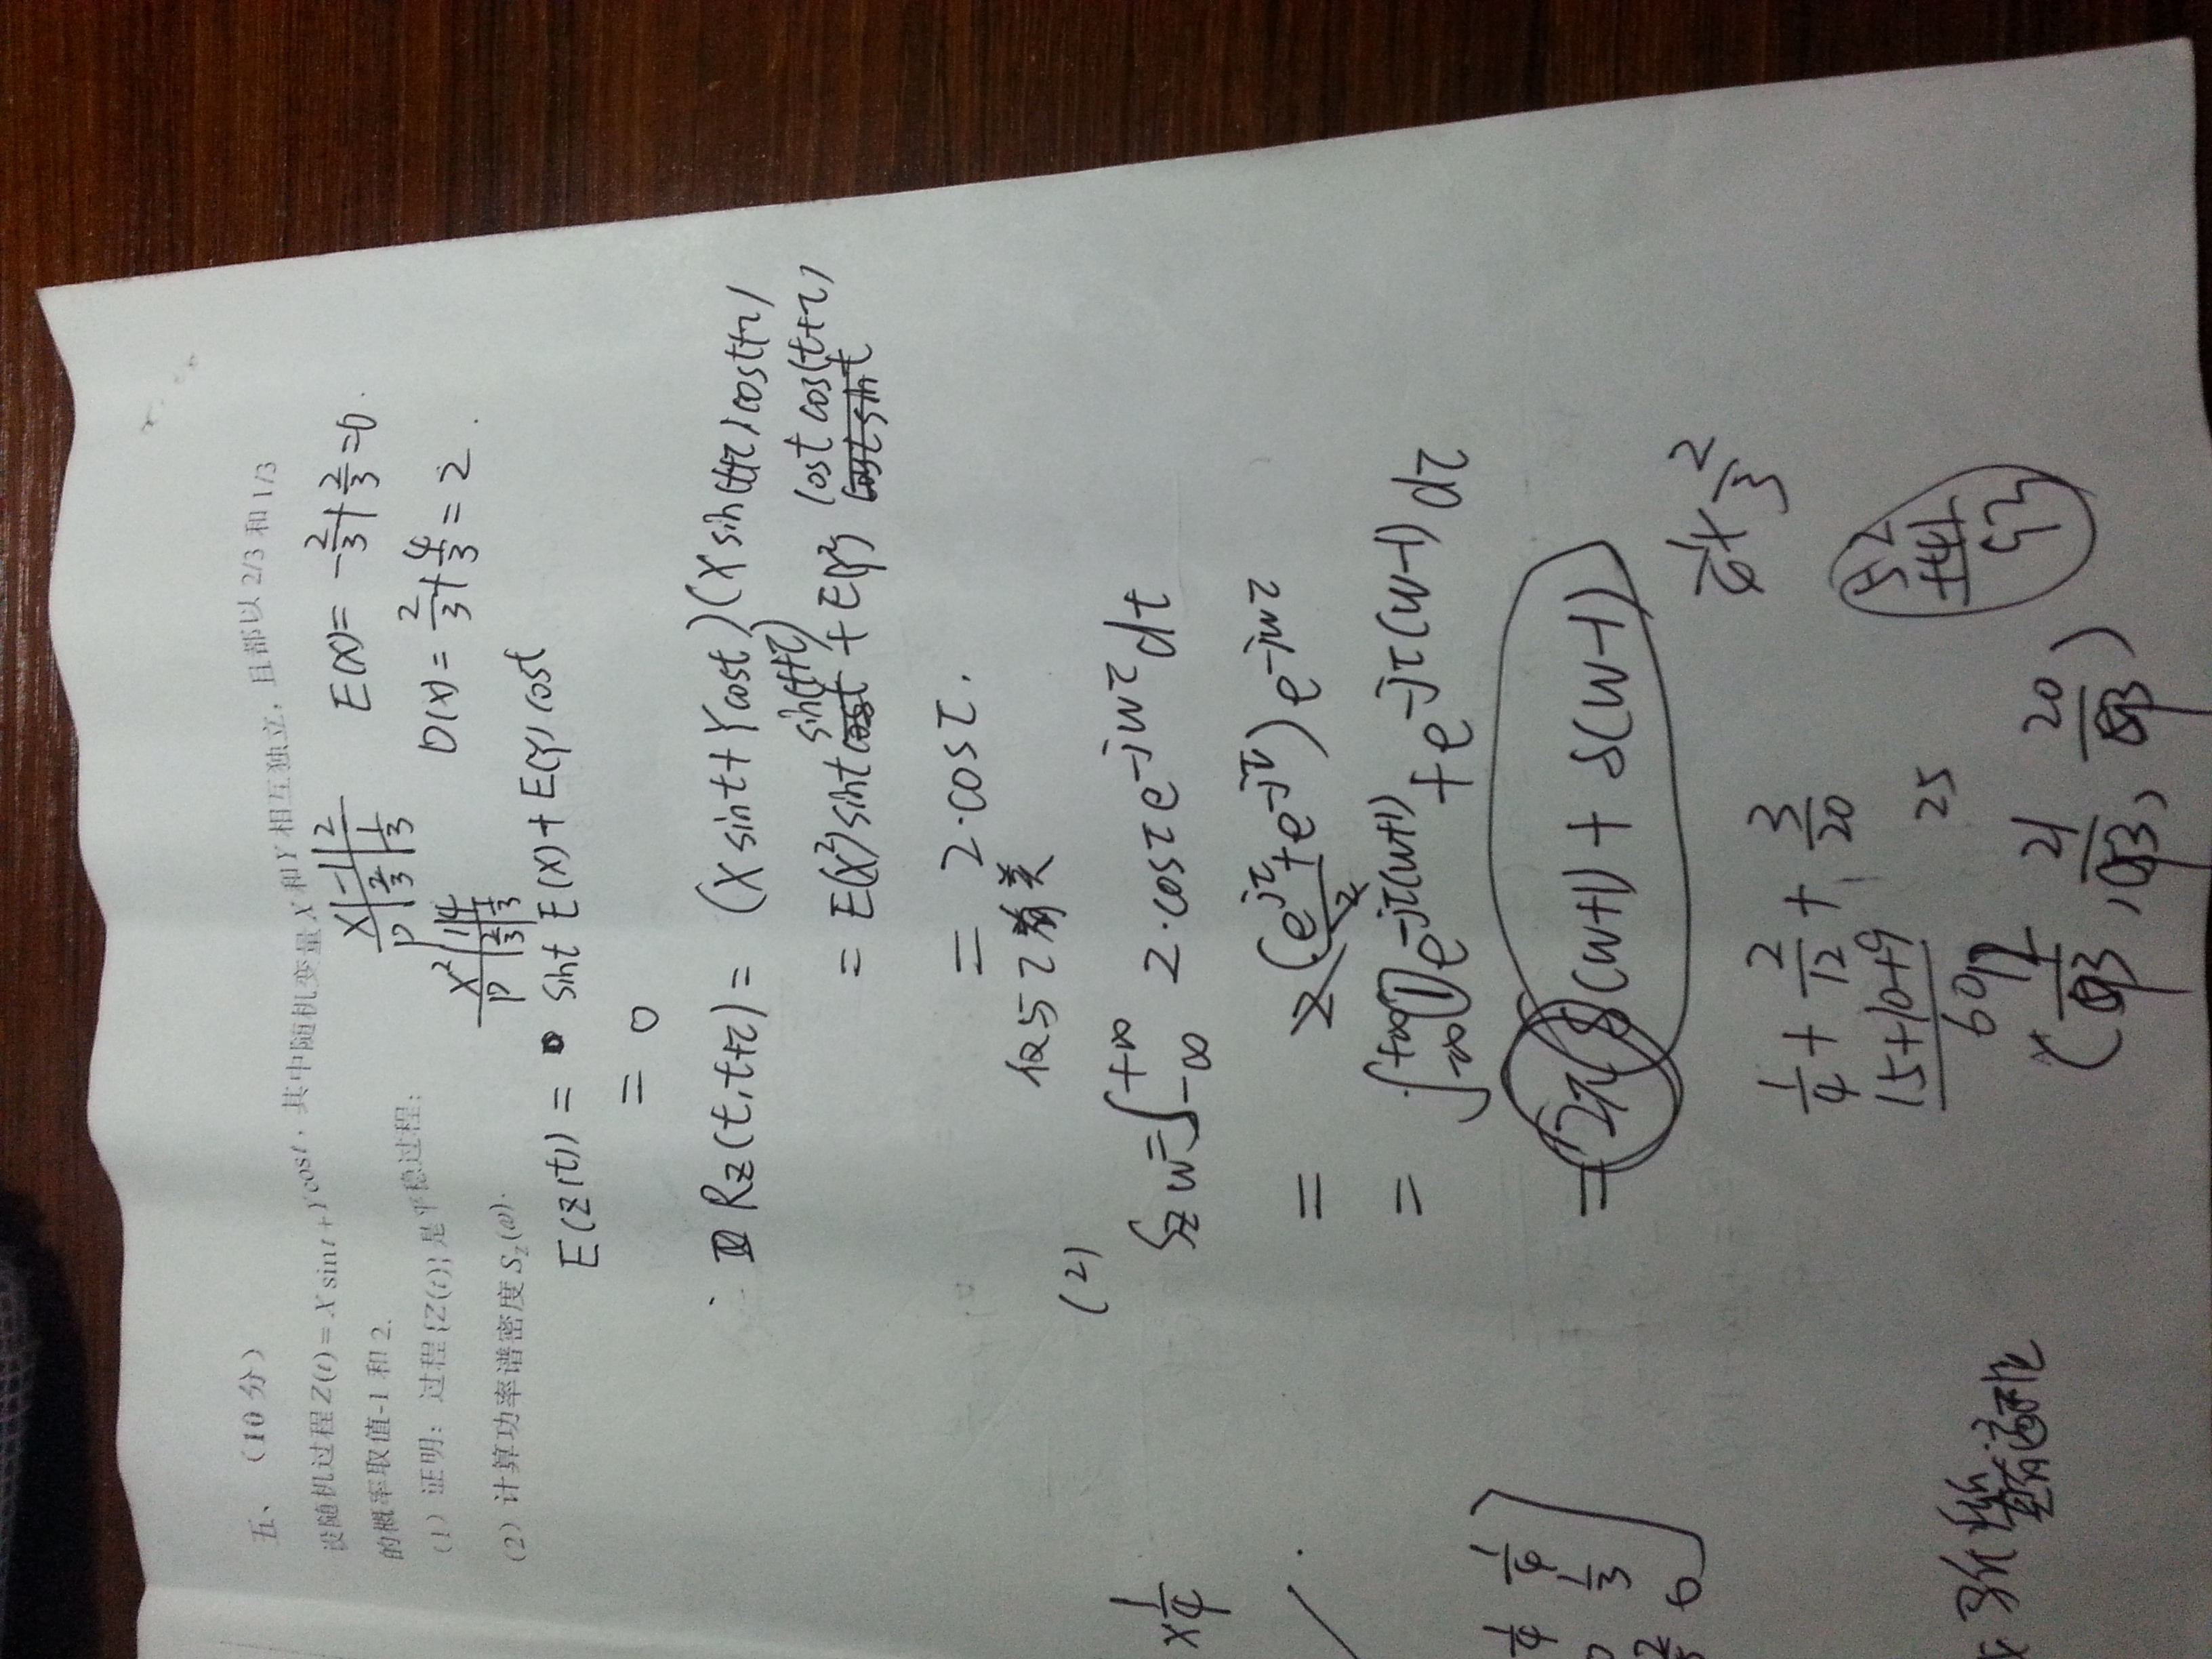 五、（10 分）
设随机过程 Z(t) = X sin t + Y cos t，其中随机变量 X 和 Y 相互独立，且都以 2/3 和 1/3
的概率取值-1 和 2.
（1）证明：过程{Z(t)}是平稳过程；
（2）计算功率谱密度 S_z(ω).
X | -1 | 2
P | 2/3 | 1/3
E(X) = -2/3 + 2/3 = 0.
X² | 1 | 4
P | 2/3 | 1/3
D(X) = 2/3 + 4/3 = 2.
E(Z(t)) = sint E(X) + E(Y) cost
= 0
Rz(t, t+τ) = (X sint + Y cost)(X sin(t+τ) cost+τ)
= E(X²) sint sin(t+τ) + E(Y²) cost cos(t+τ)
= 2·cosτ.
仅与τ有关
(2)
Sz w = ∫_{-∞}^{+∞} 2·cosτ e^{-jwτ} dt
= 2 (e^{jτ} + e^{-jτ})/2 e^{-jwτ}
= ∫_{-∞}^{+∞} e^{-jτ(w+1)} + e^{-jτ(w-1)} dτ
= 2π δ(w+1) + δ(w-1)
1/4 × 2/3
1/4 + 2/12 + 3/20
15+10+9
60
25
52
+41
93
21/93, 20/93)
×1/4
1/4 1/4
0 1/3
0